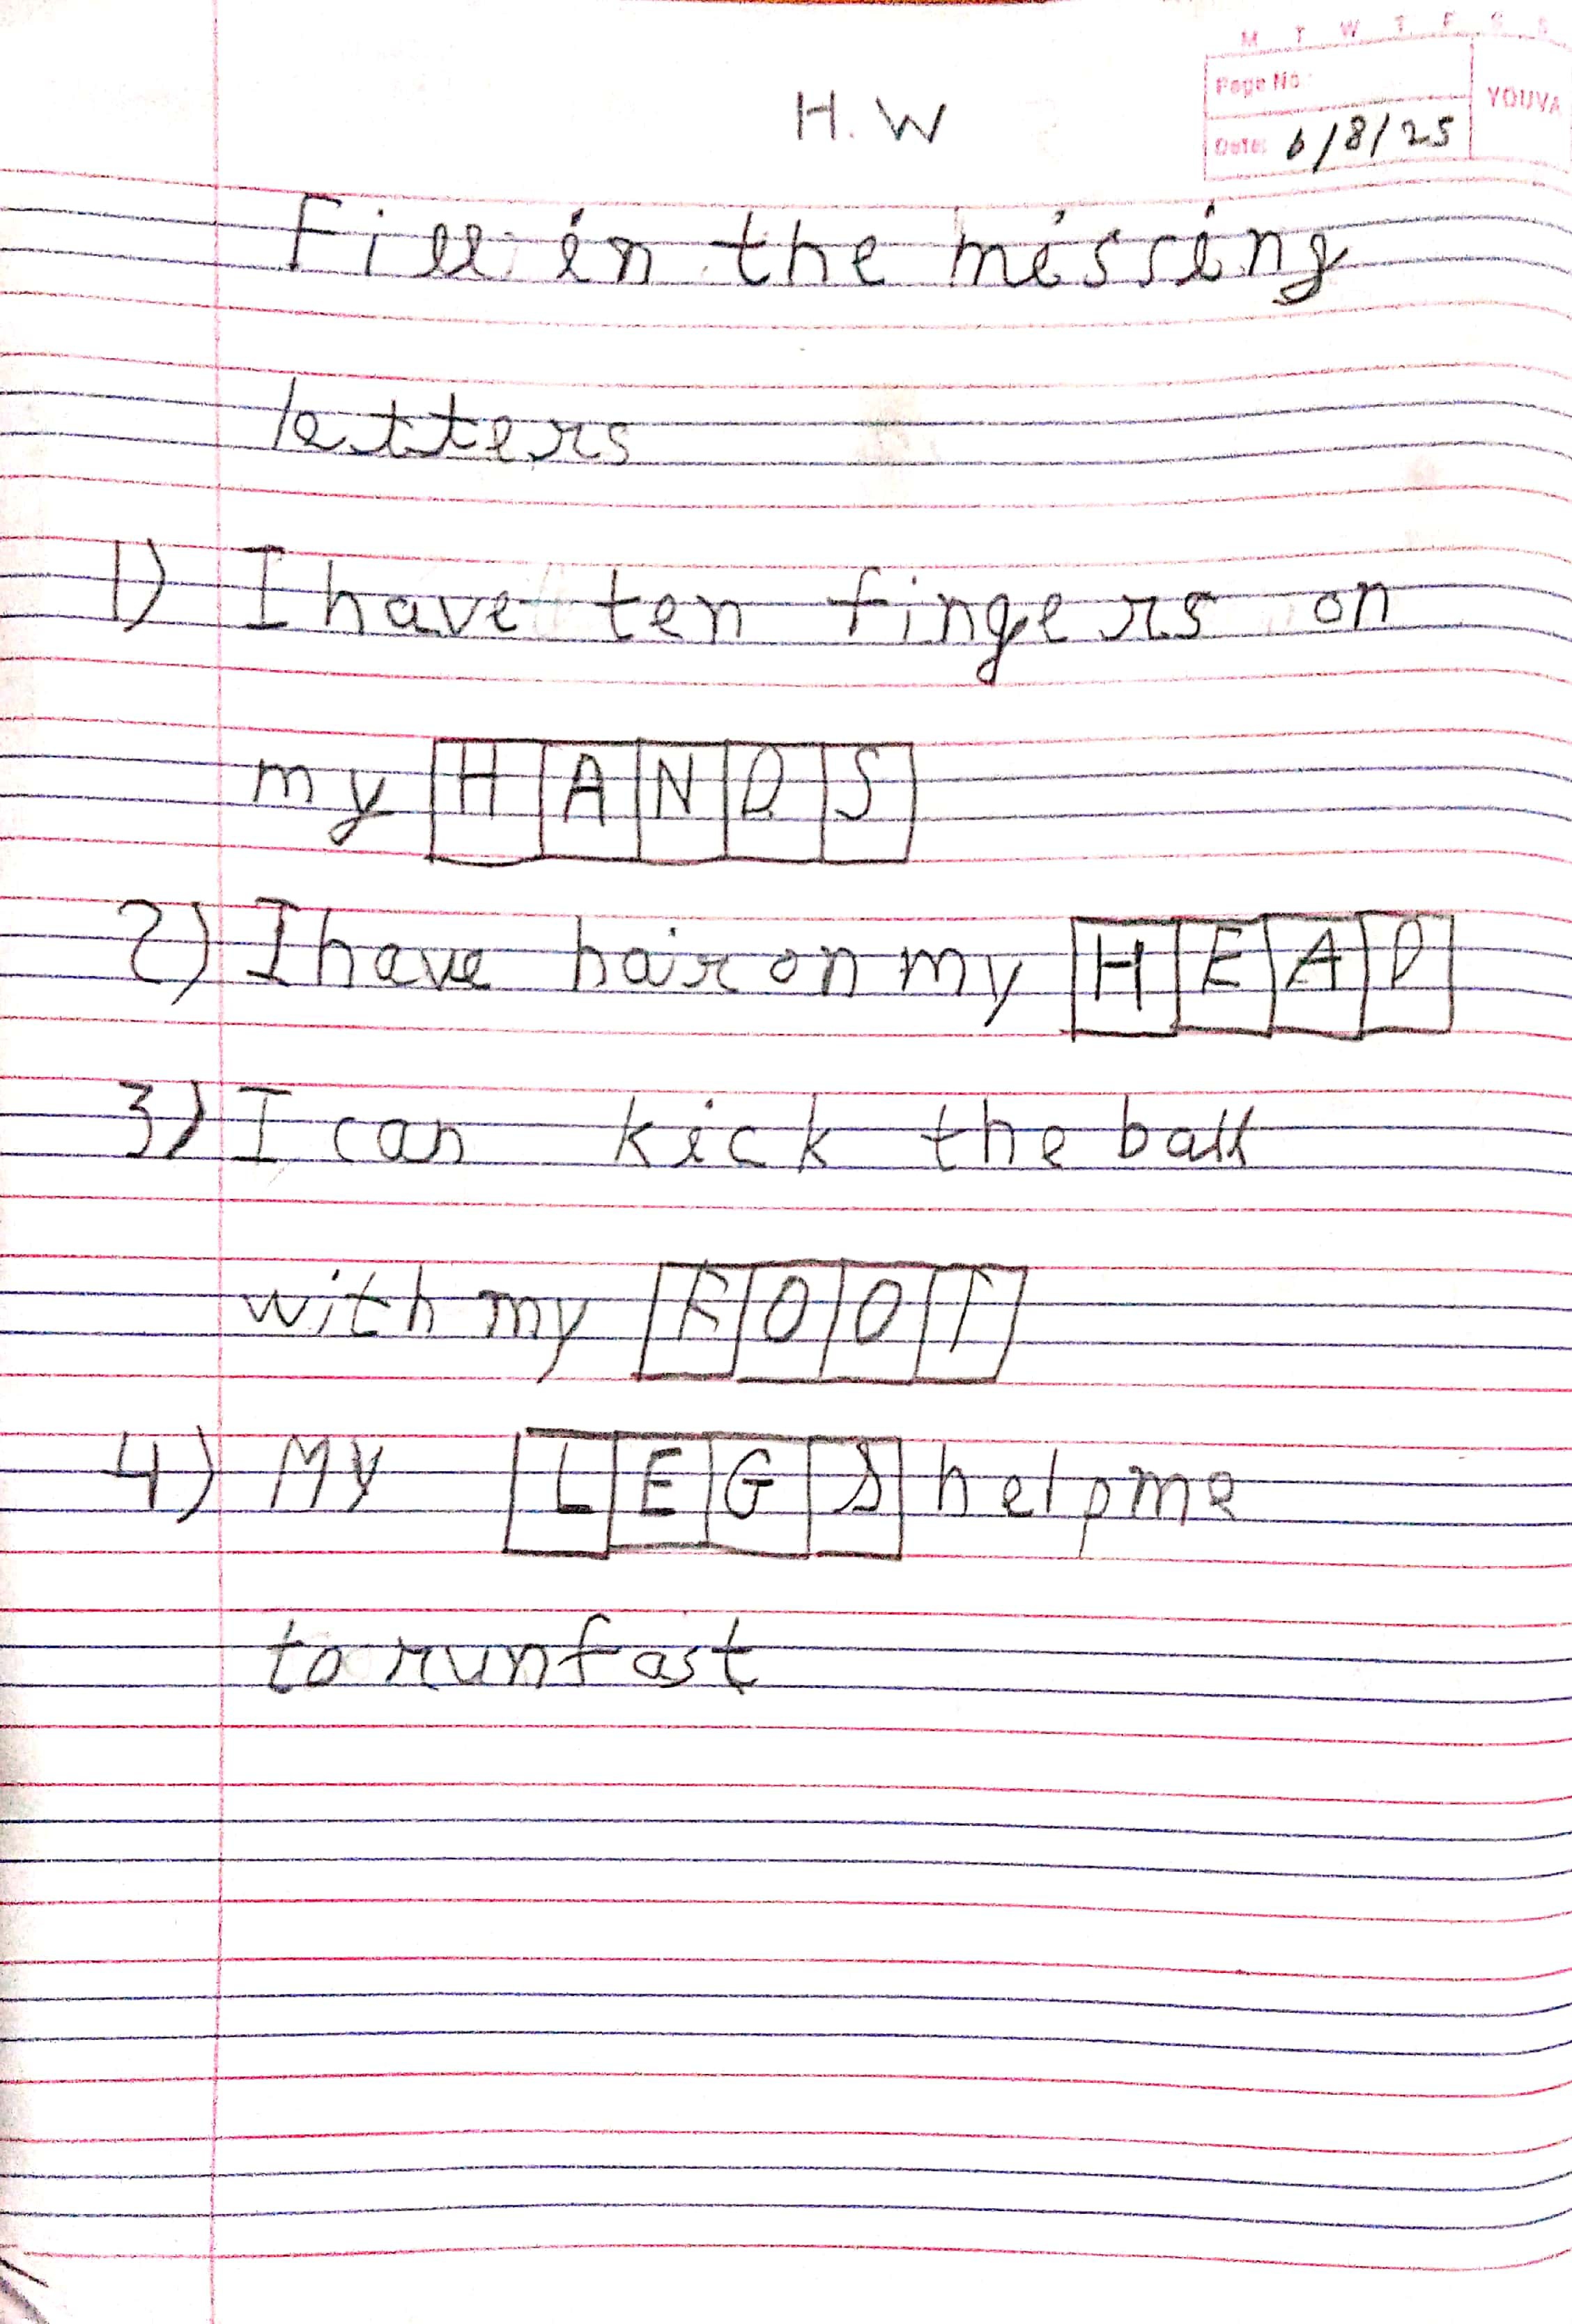 M T W T F S S
Page No.:
YOUVA
Date: 6/8/25
H.W
Fill in the missing
letters
1) I have ten fingers on
my HANDS
2) I have hair on my HEAD
3) I can kick the ball
with my FOOT
4) My LEGS help me
to run fast